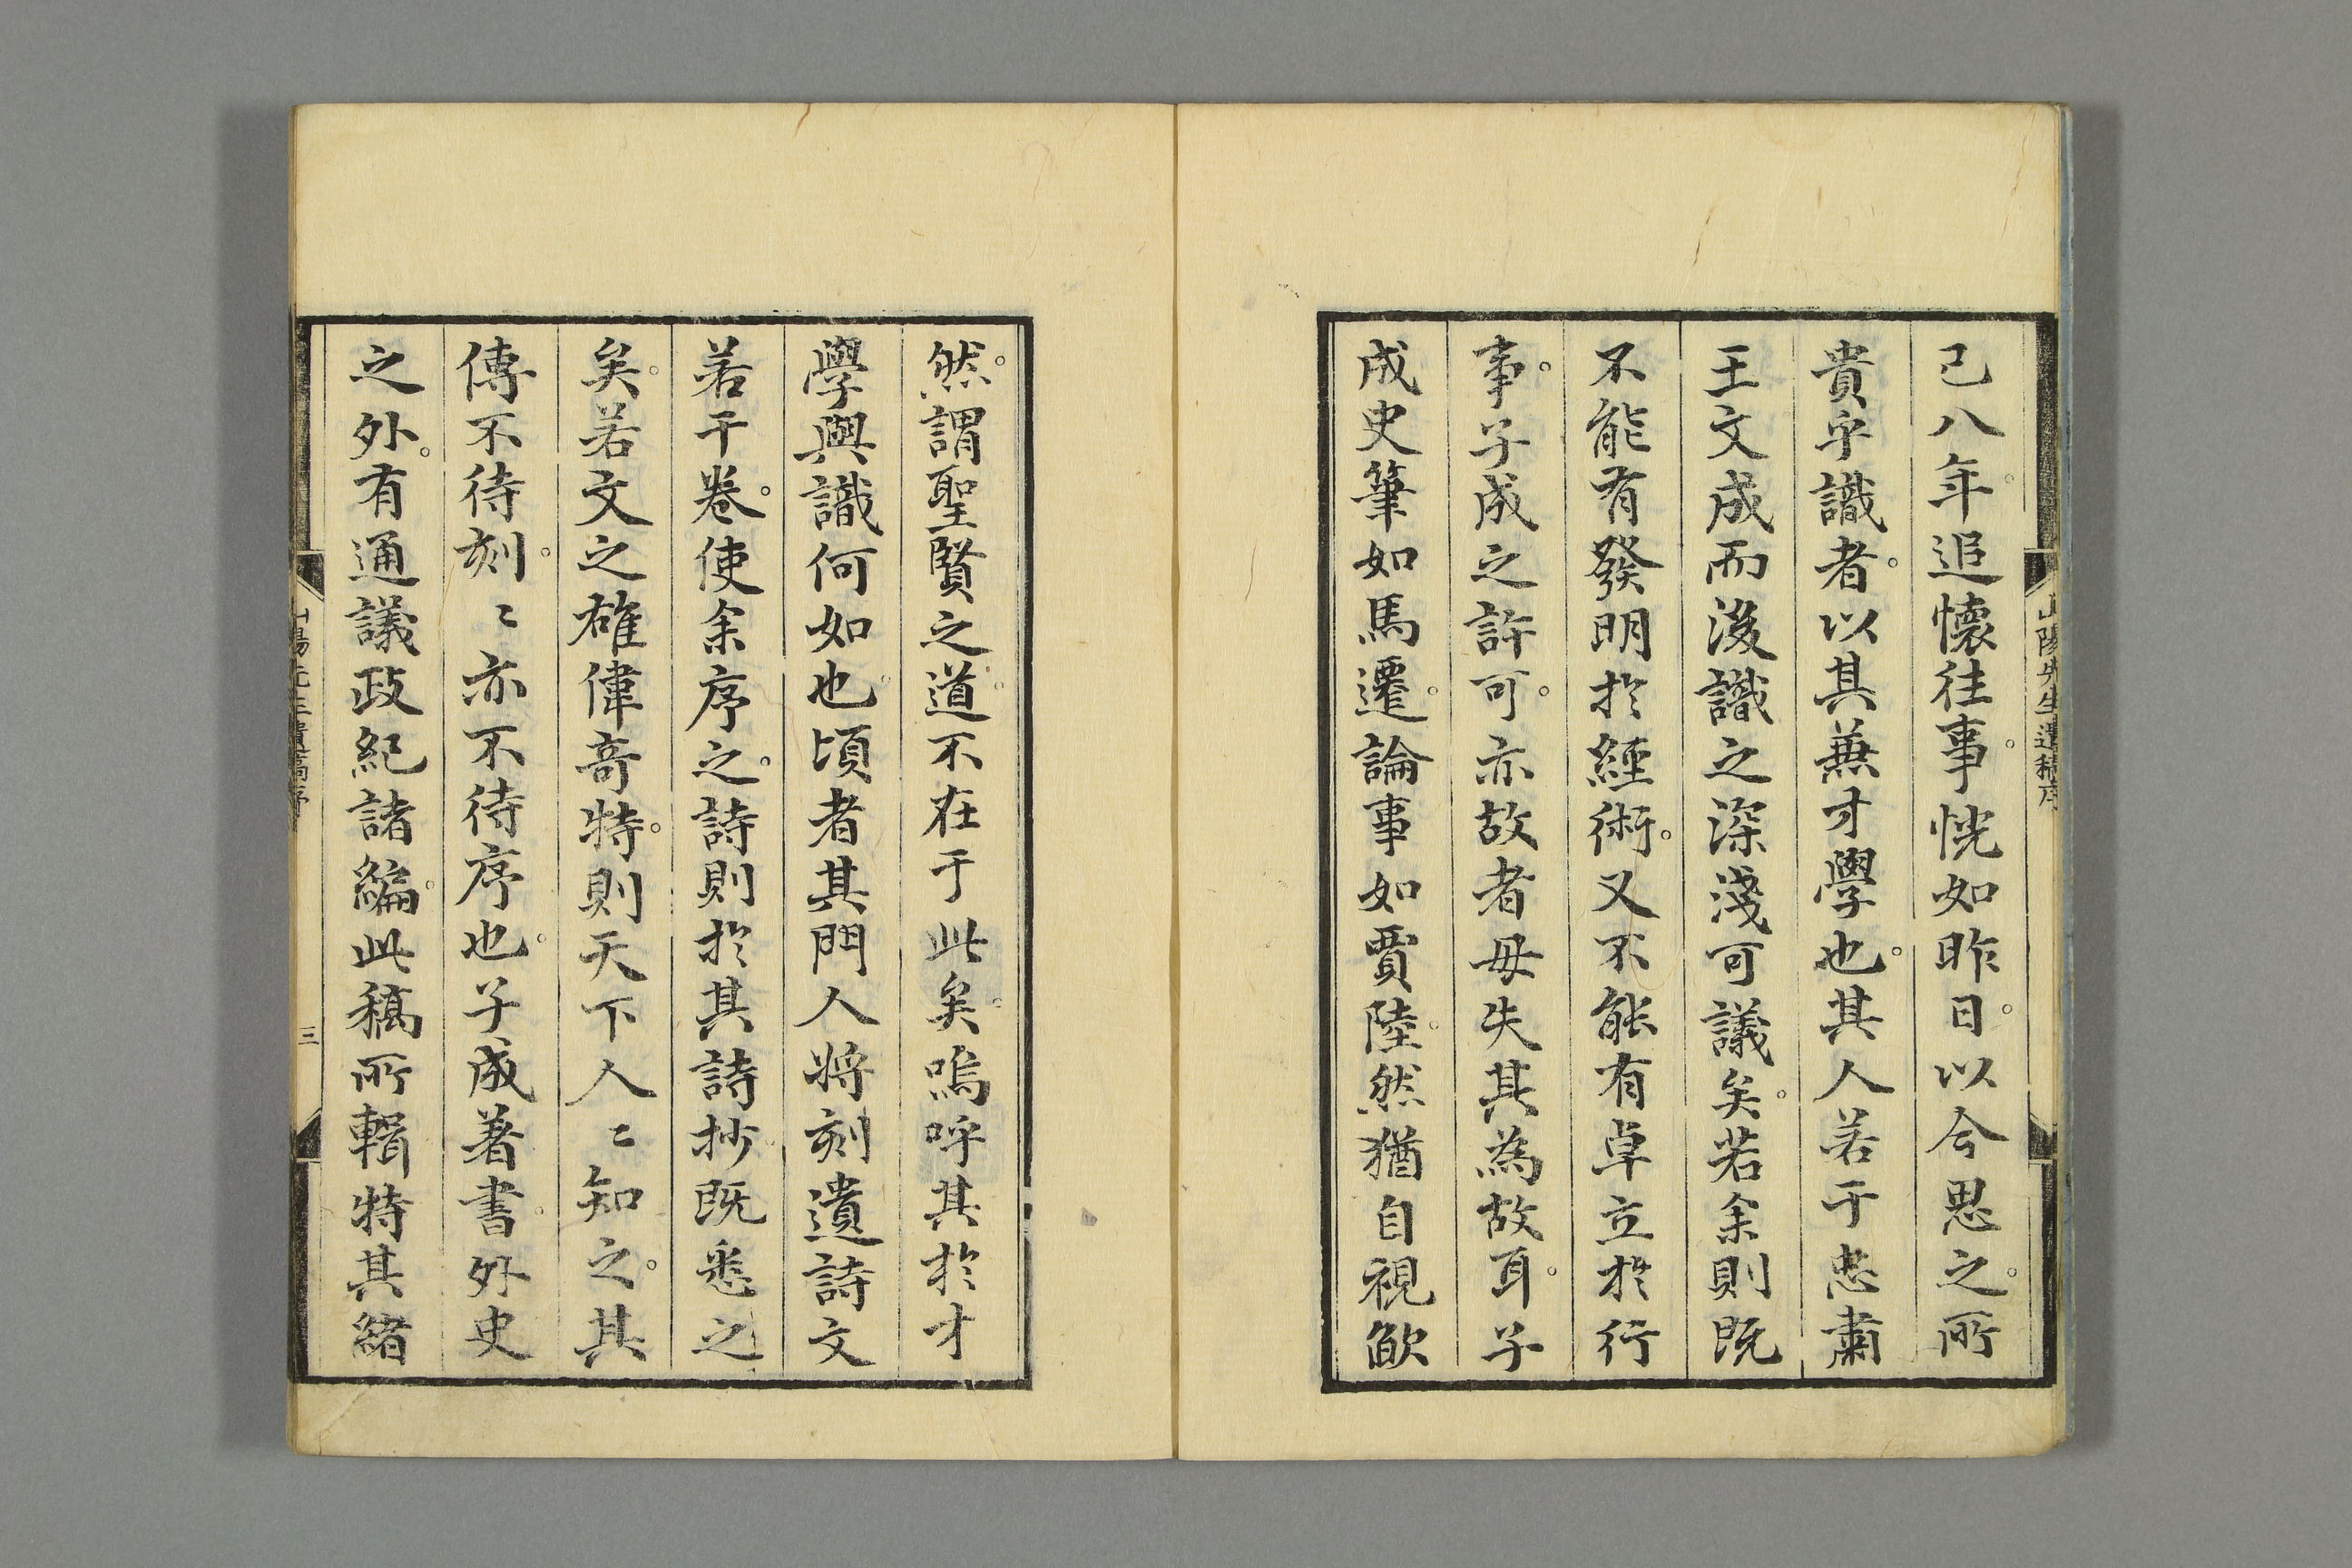 已八年。追懷往事。恍如昨日。以今思之。所
貴乎識者。以其兼才學也。其人若于忠肅
王文成而後識之深淺可議矣。若余則既
不能有發明於經術。又不能有卓立於行
事。子成之許可。亦故者毋失其為故耳。子
成史筆如馬遷。論事如賈陸。然猶自視欿
然。謂聖賢之道。不在于此矣。嗚呼其於才
學與識何如也。頃者其門人將刻遺詩文
若干卷。使余序之。詩則於其詩抄既悉之
矣。若文之雄偉奇特。則天下人〻知之。其
傳不待刻。〻亦不待序也。子成著書。外史
之外。有通議政紀諸編。此稿所輯特其緒
山陽先生遺稿序
山陽先生遺稿序
三